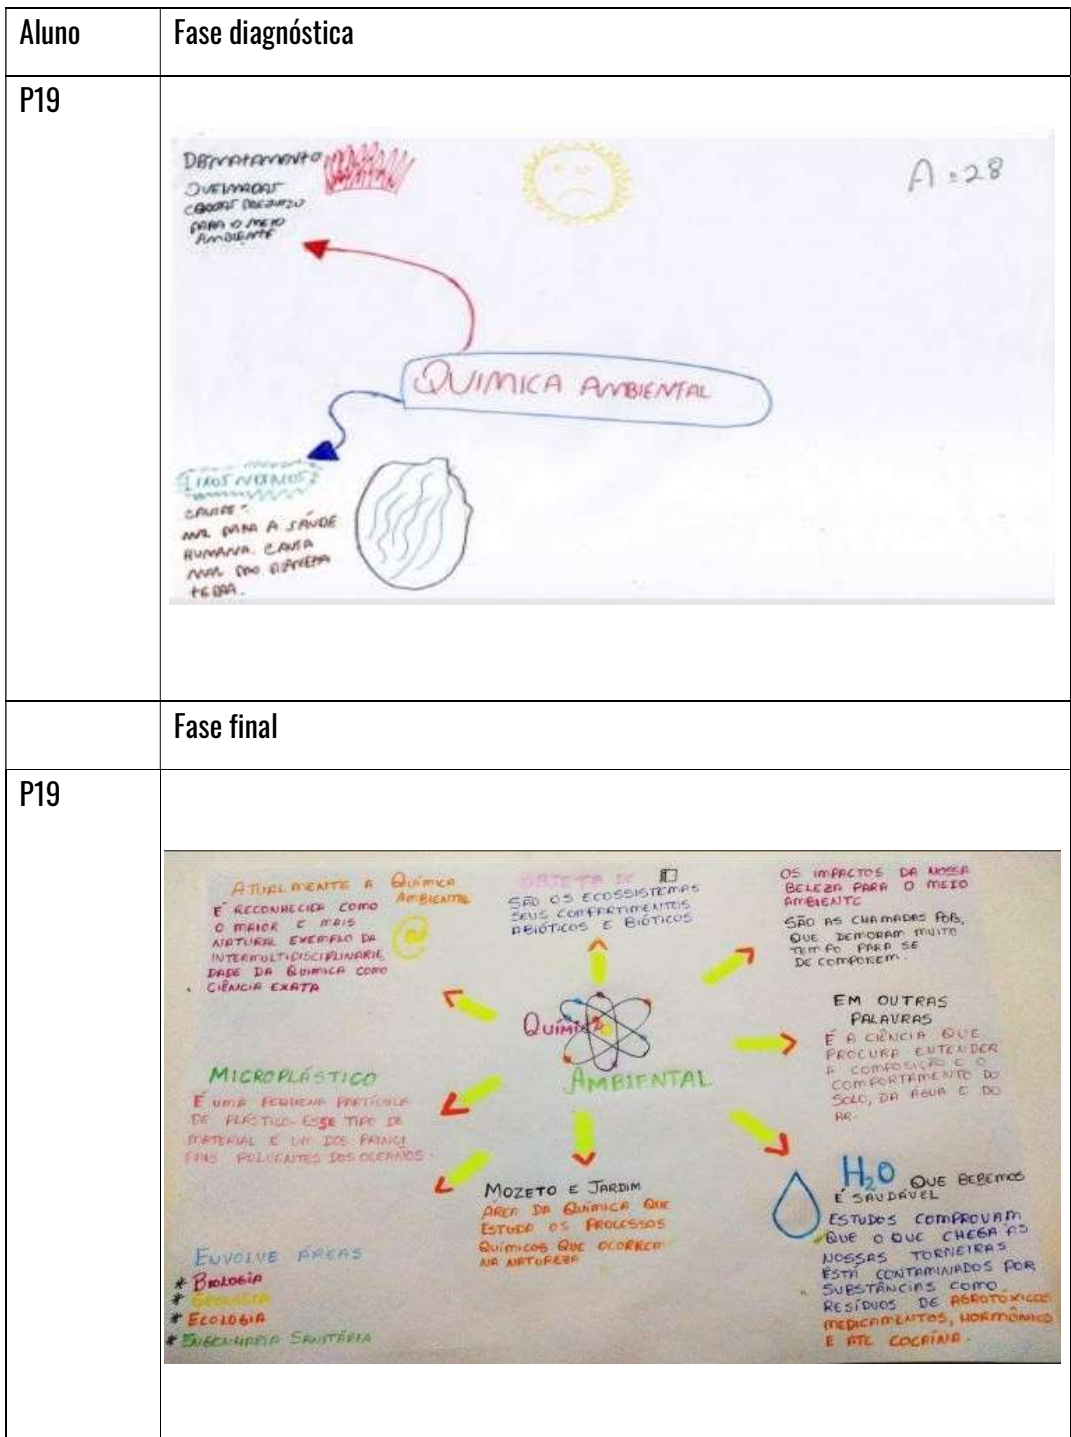 Aluno
Fase diagnóstica
P19
DESMATAMENTO
QUEIMADAS
PARA O MEIO
AMBIENTE
A = 28
QUIMICA AMBIENTAL
MAL PARA A SAÚDE
HUMANA. CAUSA
MAL PRO PLANETA
TERRA.
Fase final
P19
ATUALMENTE A QUÍMICA
AMBIENTAL
É RECONHECIDA COMO
O MAIOR E MAIS
NATURAL EXEMPLO DA
INTERMULTIDISCIPLINARIE
DADE DA QUÍMICA COMO
CIÊNCIA EXATA
OBJETO DE
SÃO OS ECOSSISTEMAS
SEUS COMPARTIMENTOS
ABIÓTICOS E BIÓTICOS
OS IMPACTOS DA NOSSA
BELEZA PARA O MEIO
AMBIENTE
SÃO AS CHAMADAS POPs,
QUE DEMORAM MUITO
TEMPO PARA SE
DECOMPOREM.
QUÍMICA
AMBIENTAL
EM OUTRAS
PALAVRAS
É A CIÊNCIA QUE
PROCURA ENTENDER
A COMPOSIÇÃO E O
COMPORTAMENTO DO
SOLO, DA ÁGUA E DO
AR.
MICROPLÁSTICO
É UMA PEQUENA PARTÍCULA
DE PLÁSTICO. ESSE TIPO DE
MATERIAL É UM DOS PRINCI
PAIS POLUENTES DOS OCEANOS.
MOZETO E JARDIM
ÁREA DA QUÍMICA QUE
ESTUDA OS PROCESSOS
QUÍMICOS QUE OCORREM
NA NATUREZA
H₂O QUE BEBEMOS
É SAUDÁVEL
ESTUDOS COMPROVAM
QUE O QUE CHEGA ÀS
NOSSAS TORNEIRAS
ESTÁ CONTAMINADOS POR
SUBSTÂNCIAS COMO
RESÍDUOS DE AGROTOXICOS
MEDICAMENTOS, HORMÔNIOS
E ATÉ COCAÍNA.
ENVOLVE ÁREAS
* BIOLOGIA
* GEOLOGIA
* ECOLOGIA
* ENGENHARIA SANITÁRIA